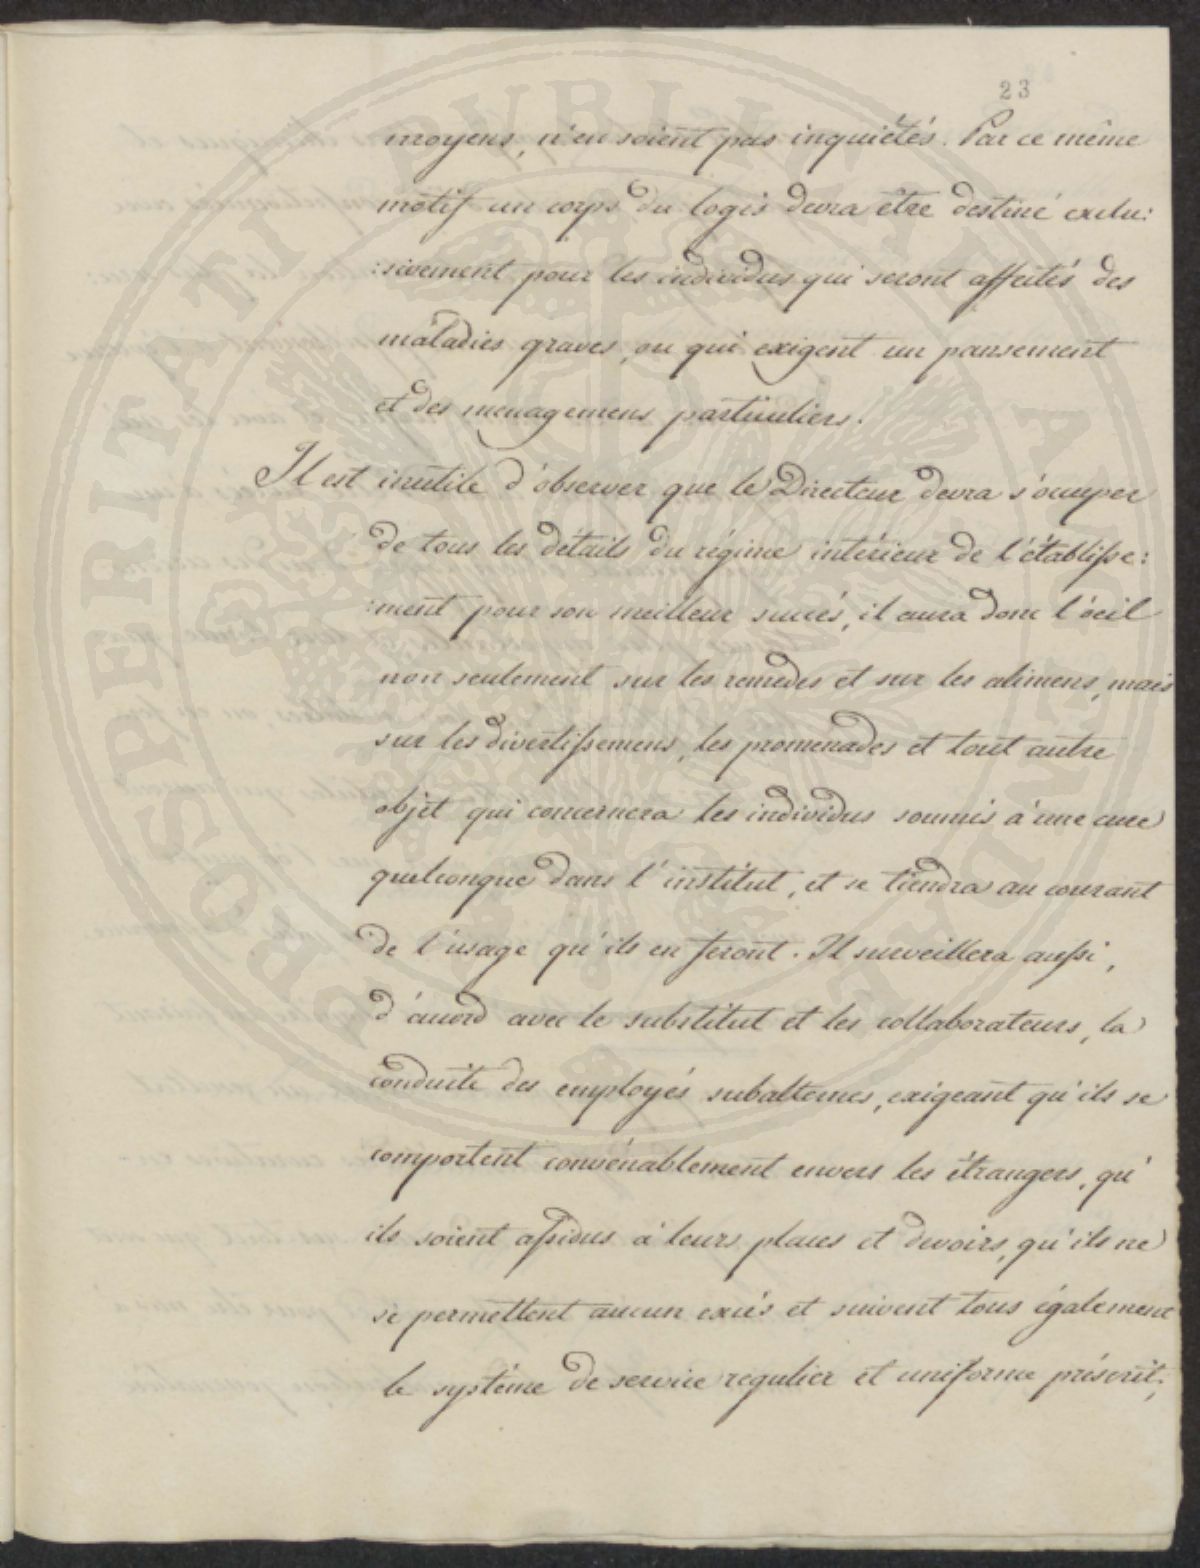 23
moyens, n'en soient pas inquiétés. Par ce même
motif un corps du logis devra être destiné exclu:
:sivement pour les individus qui seront affectés des
maladies graves, ou qui exigent un pansement
et des menagemens particuliers.
Il est inutile d'observer que le Directeur devra s'occuper
de tous les détails du régime intérieur de l'établisse:
:ment pour son meilleur succés, il aura donc l'oeil
non seulement sur les remedes et sur les alimens, mais
sur les divertissemens, les promenades et tout autre
objet qui concernera les individus soumis à une cure
quelconque dans l'institut, et se tiendra au courant
de l'usage qu'ils en feront. Il surveillera aussi,
d'accord avec le substitut et les collaborateurs, la
conduite des employés subalternes, exigeant qu'ils se
comportent convénablement envers les étrangers, qu'
ils soient assidus à leurs places et devoirs, qu'ils ne
se permettent aucun excés et suivent tous également
le système de service regulier et uniforme préscrit;
PROSPERITATI PVBLICAE AVGENDAE